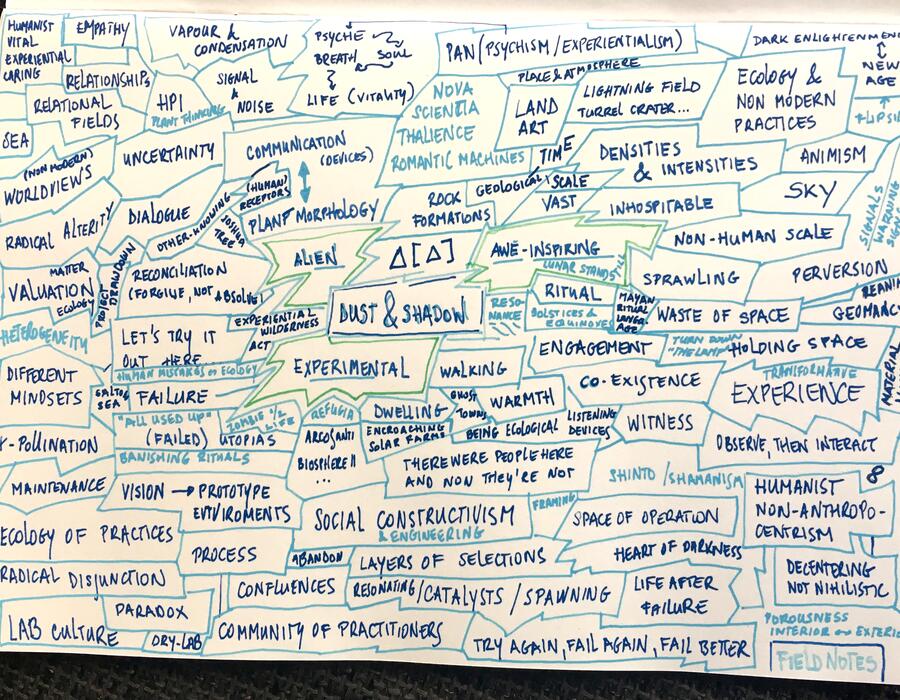 HUMANIST
VITAL
EXPERIENTIAL
CARING
EMPATHY
VAPOUR &
CONDENSATION
PSYCHE
BREATH SOUL
LIFE (VITALITY)
PAN (PSYCHISM / EXPERIENTIALISM)
DARK ENLIGHTENMENT
NEW
AGE
RELATIONSHIPS
RELATIONAL
FIELDS
HPI
PLANT THINKING
SIGNAL
&
NOISE
NOVA
SCIENTIA
THALIENCE
ROMANTIC MACHINES
PLACE & ATMOSPHERE
LAND
ART
LIGHTNING FIELD
TURREL CRATER...
ECOLOGY &
NON MODERN
PRACTICES
SEA
(NON MODERN)
WORLDVIEWS
UNCERTAINTY
COMMUNICATION
(DEVICES)
(HUMAN)
RECEPTORS
PLANT MORPHOLOGY
TIME
DENSITIES
& INTENSITIES
ANIMISM
SKY
SIGNALS
WARNING
ROCK
FORMATIONS
GEOLOGICAL SCALE
VAST
INHOSPITABLE
RADICAL ALTERITY
DIALOGUE
OTHER-KNOWING
JOSHUA
TREE
ALIEN
Δ[Δ]
AWE-INSPIRING
LUNAR STANDSTILL
NON-HUMAN SCALE
MATTER
VALUATION
ECOLOGY
PROJECT
DRAWDOWN
RECONCILIATION
(FORGIVE, NOT ABSOLVE)
SPRAWLING
PERVERSION
DUST & SHADOW
RESO-
NANCE
RITUAL
SOLSTICES &
EQUINOXES
MAYAN
RITUAL
WASTE OF SPACE
GEOMANCY
HETEROGENEITY
LET'S TRY IT
OUT HERE
EXPERIENTIAL
WILDERNESS
ACT
ENGAGEMENT
TURN DOWN
"THE LAMP"
HOLDING SPACE
HUMAN MISTAKES OR ECOLOGY
DIFFERENT
MINDSETS
SALTON
SEA
FAILURE
EXPERIMENTAL
WALKING
CO-EXISTENCE
TRANSFORMATIVE
EXPERIENCE
MATERIAL
"ALL USED UP"
(FAILED) UTOPIAS
BANISHING RITUALS
ZOMBIE ½
LIFE
REFUGIA
ARCOSANTI
BIOSPHERE II
...
DWELLING
ENCROACHING
SOLAR FARMS
GHOST
TOWNS
WARMTH
BEING ECOLOGICAL
LISTENING
DEVICES
WITNESS
OBSERVE, THEN INTERACT
X-POLLINATION
THERE WERE PEOPLE HERE
AND NON THEY'RE NOT
SHINTO / SHAMANISM
MAINTENANCE
VISION → PROTOTYPE
ENVIROMENTS
SOCIAL CONSTRUCTIVISM
& ENGINEERING
FRAMING
SPACE OF OPERATION
HUMANIST
NON-ANTHROPO-
CENTRISM
∞
ECOLOGY OF PRACTICES
PROCESS
ABANDON
LAYERS OF SELECTIONS
HEART OF DARKNESS
DECENTERING
NOT NIHILISTIC
RADICAL DISJUNCTION
CONFLUENCES
RESONATING / CATALYSTS / SPAWNING
LIFE AFTER
FAILURE
PARADOX
LAB CULTURE
DRY-LAB
COMMUNITY OF PRACTITIONERS
TRY AGAIN, FAIL AGAIN, FAIL BETTER
POROUSNESS
INTERIOR
FIELD NOTES